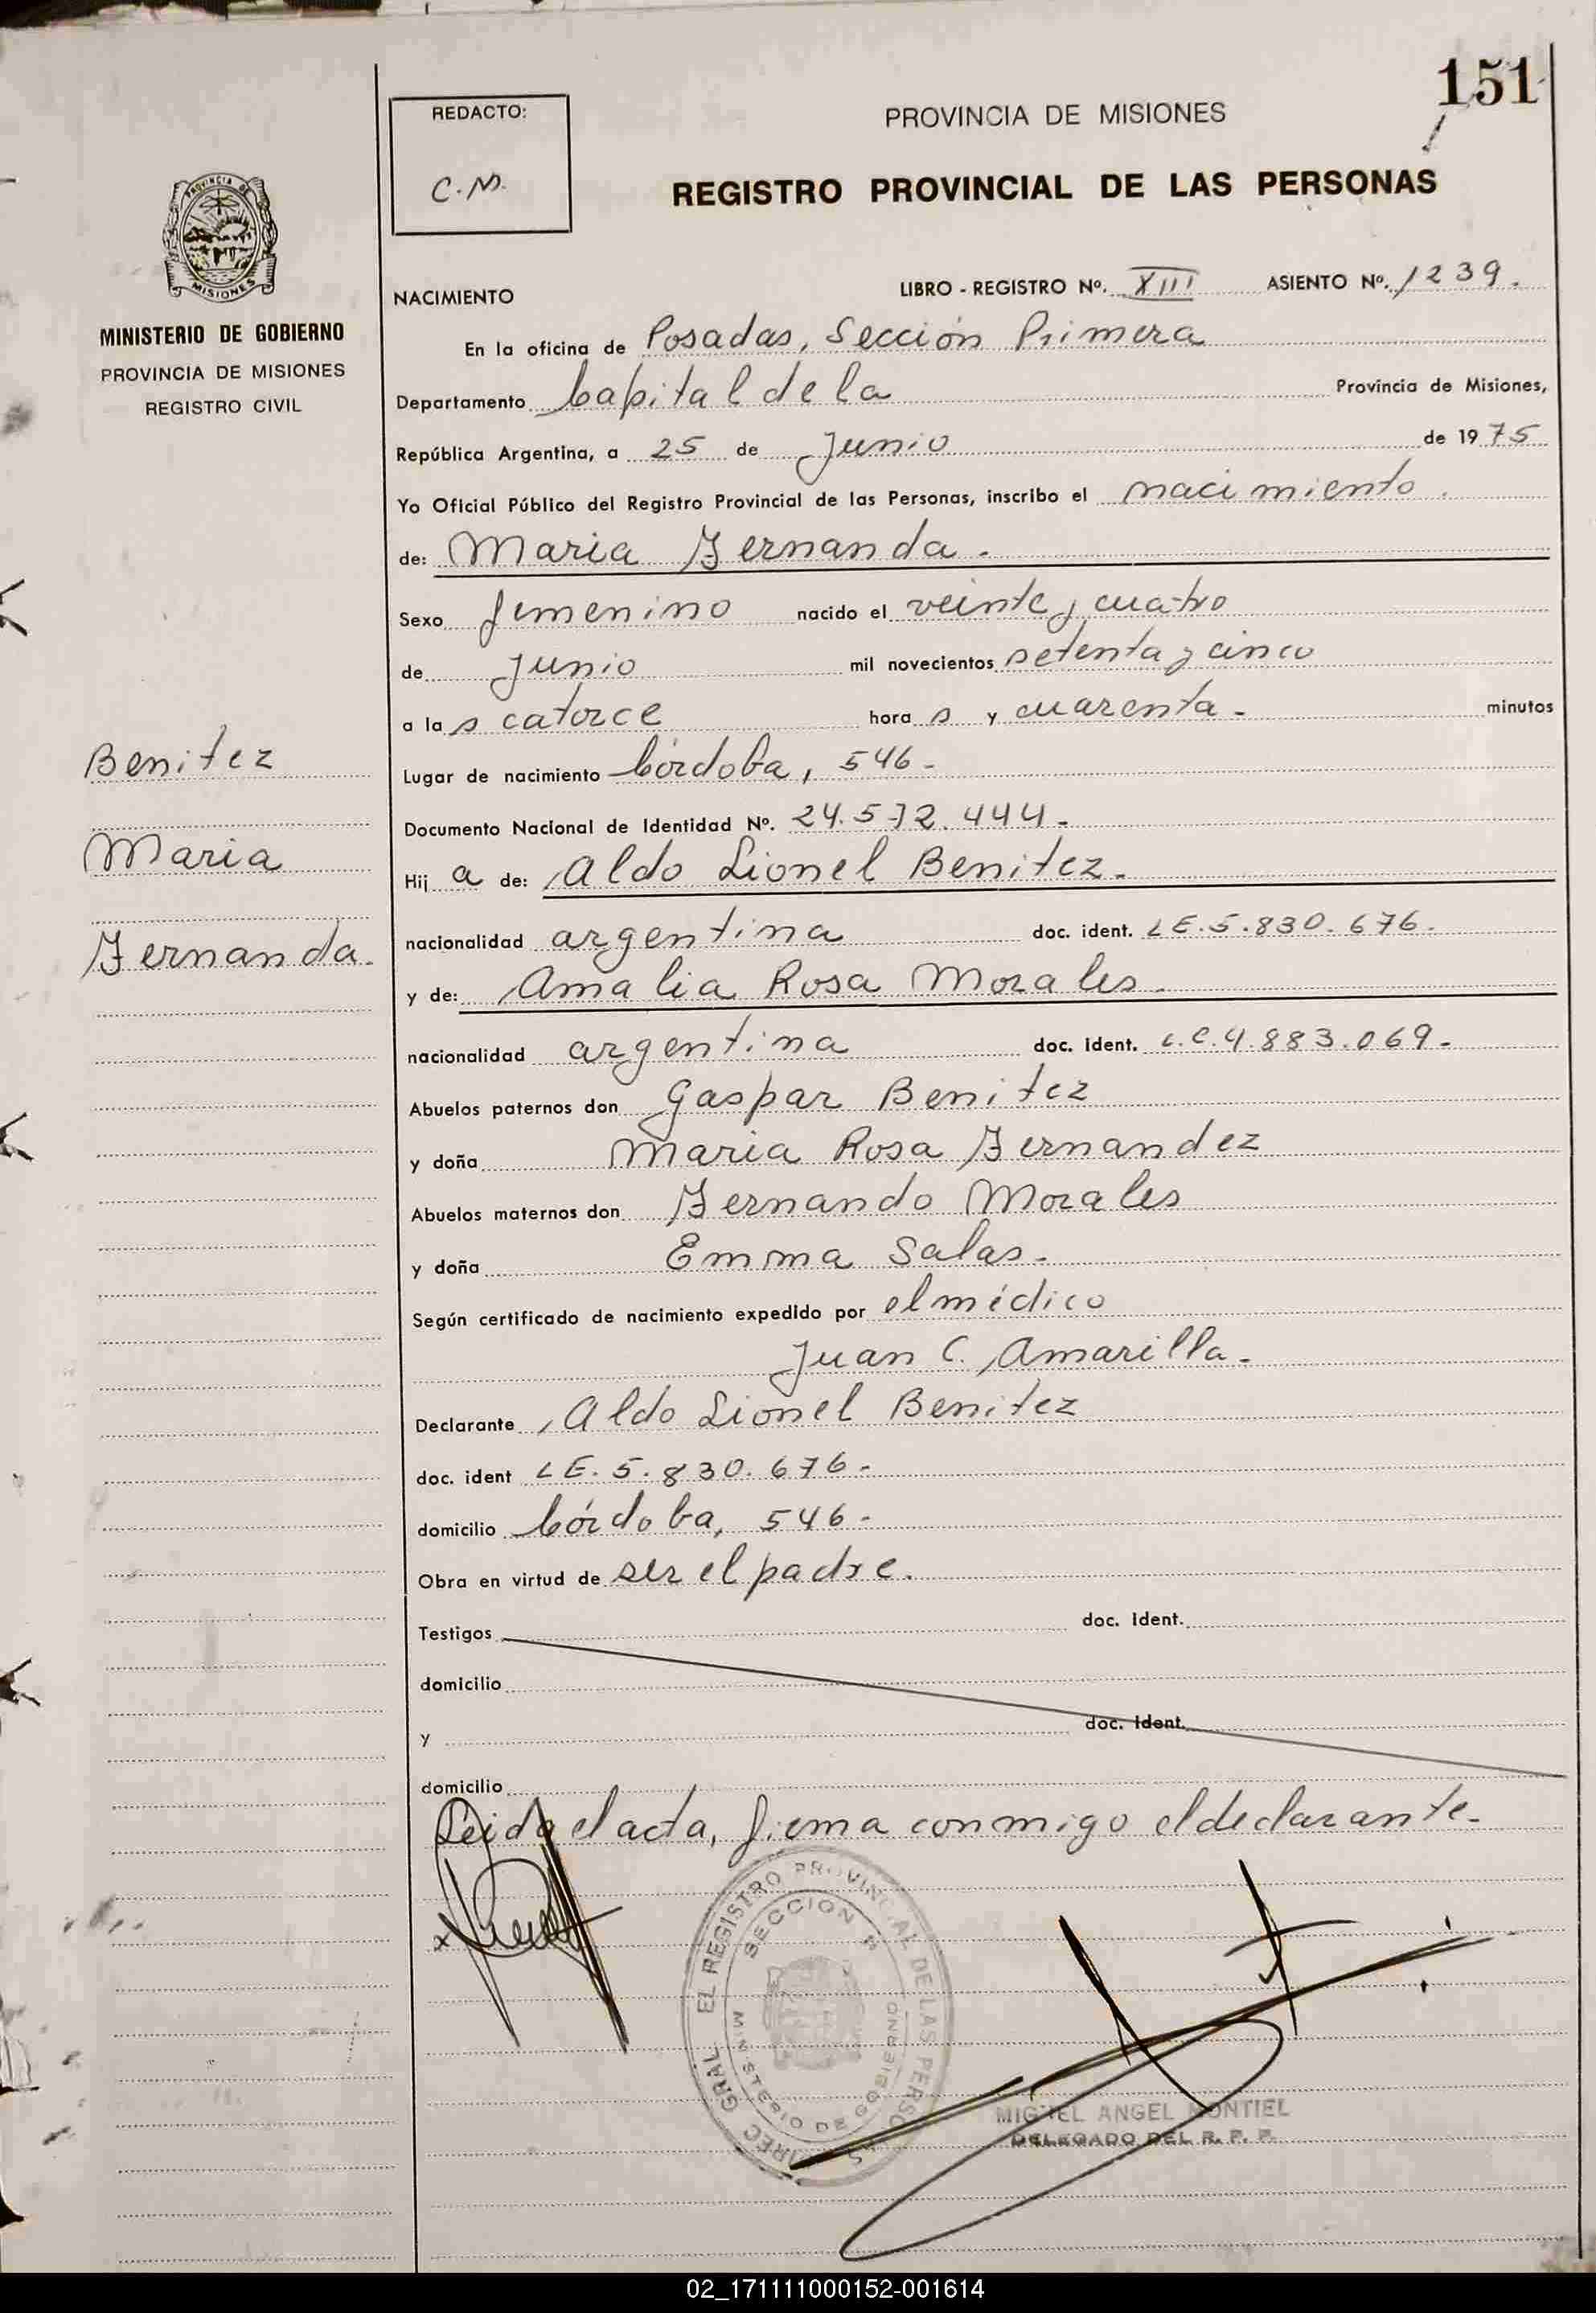 151
REDACTO:
C.M.
PROVINCIA DE MISIONES
REGISTRO PROVINCIAL DE LAS PERSONAS
PROVINCIA DE
MISIONES
MINISTERIO DE GOBIERNO
PROVINCIA DE MISIONES
REGISTRO CIVIL
NACIMIENTO
LIBRO - REGISTRO Nº. XIII ASIENTO Nº. 1239.
En la oficina de Posadas, Sección Primera
Departamento Capital de la Provincia de Misiones,
República Argentina, a 25 de Junio de 1975
Yo Oficial Público del Registro Provincial de las Personas, inscribo el nacimiento.
de: Maria Fernanda.
Sexo femenino nacido el veinte y cuatro
de Junio mil novecientos setenta y cinco
a las catorce horas y cuarenta- minutos
Benitez
Maria
Fernanda.
Lugar de nacimiento Córdoba, 546-
Documento Nacional de Identidad Nº. 24.572.444-
Hija de: Aldo Lionel Benitez.
nacionalidad argentina doc. ident. LE.5.830.676.
y de: Amalia Rosa Morales.
nacionalidad argentina doc. ident. L.C.4.883.069-
Abuelos paternos don Gaspar Benitez
y doña Maria Rosa Fernandez
Abuelos maternos don Fernando Morales
y doña Emma Salas-
Según certificado de nacimiento expedido por el médico
Juan C. Amarilla-
Declarante Aldo Lionel Benitez
doc. ident LE.5.830.676-
domicilio Córdoba, 546-
Obra en virtud de ser el padre.
Testigos doc. ident.
domicilio
y doc. ident.
domicilio
Leida el acta, firma conmigo el declarante-
DIREC GRAL EL REGISTRO PROVINCIAL DE LAS PERSONAS
SECCION
MINISTERIO DE GOBIERNO
MIGUEL ANGEL MONTIEL
DELEGADO DEL R. P. P.
02_171111000152-001614